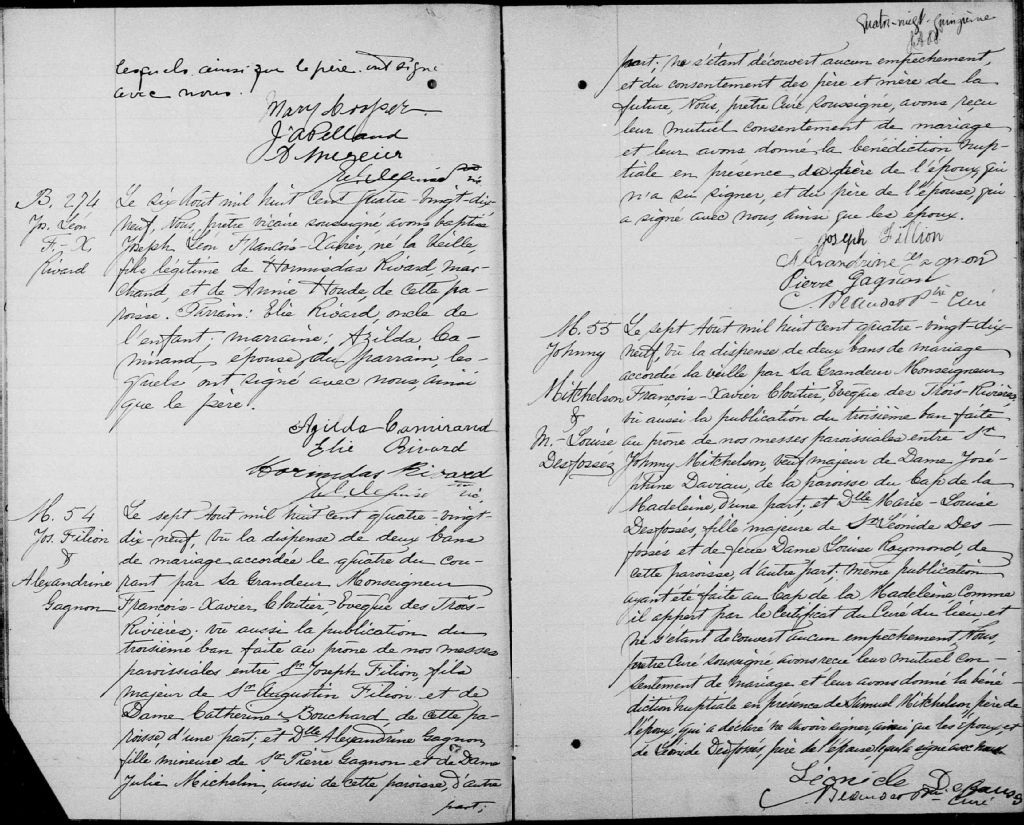 lesquels ainsi que le père ont signé
avec nous.
Mary Cooper
B. 274
Jos. Léon
F.-X.
Rivard
Le six Août mil huit cent quatre-vingt-dix-
neuf, Nous, prêtre vicaire soussigné avons baptisé
Joseph Léon François-Xavier, né la veille,
fils légitime de Hormisdas Rivard, mar-
chand, et de Annie Houde, de cette pa-
roisse. Parrain: Elie Rivard, oncle de
l'enfant; marraine, Azilda Ca-
mirand, épouse du parrain, les-
quels ont signé avec nous, ainsi
que le père.
Azilda Camirand
Elie Rivard
Hormidas Rivard
M. 54
Jos. Filion
&
Alexandrine
Gagnon
Le sept Août mil huit cent quatre-vingt-
dix-neuf, vu la dispense de deux bans
de mariage accordée le quatre du cou-
rant par Sa Grandeur Monseigneur
François-Xavier Cloutier Evêque des Trois-
Rivières; vu aussi la publication du
troisième ban faite au prône de nos messes
paroissiales entre Sr Joseph Filion, fils
majeur de Sr Augustin Filion et de
Dame Catherine Bouchard, de cette pa-
roisse, d'une part; et Dlle Alexandrine Gagnon,
fille mineure de Sr Pierre Gagnon et de Dame
Julie Michelin, aussi de cette paroisse, d'autre
part;
Quatre-vingt-quinzième
part; Ne s'étant découvert aucun empêchement,
et du consentement des père et mère de la
future, Nous, prêtre Curé soussigné, avons reçu
leur mutuel consentement de mariage
et leur avons donné la bénédiction nup-
tiale en présence du père de l'époux, qui
n'a su signer, et du père de l'épouse, qui
a signé avec nous, ainsi que les époux.
Joseph Fillion
Alexandrine Gagnon
Pierre Gagnon
Ptre Curé
M. 55
Johnny
Mitchelson
&
M.-Louise
Desfossés
Le sept Août mil huit cent quatre-vingt-dix-
neuf, vu la dispense de deux bans de mariage
accordée la veille par Sa Grandeur Monseigneur
François-Xavier Cloutier, Evêque des Trois-Rivières,
vu aussi la publication du troisième ban faite
au prône de nos messes paroissiales entre Sr
Johnny Mitchelson, veuf majeur de Dame José-
phine Daveau, de la paroisse du Cap de la
Madeleine, d'une part; et Dlle Marie-Louise
Desfossés, fille majeure de Sr Léonide Des-
fossés et de feue Dame Louise Raymond, de
cette paroisse, d'autre part; même publication
ayant été faite au Cap de la Madeleine comme
il appert par le certificat du Curé du lieu, et
ne s'étant découvert aucun empêchement Nous,
prêtre Curé soussigné avons reçu leur mutuel con-
sentement de mariage et leur avons donné la béné-
diction nuptiale en présence de Samuel Mitchelson, père de
l'époux, qui a déclaré ne savoir signer, ainsi que les époux, et
de Léonide Desfossés, père de l'épouse, qui a signé avec nous
Ptre Curé